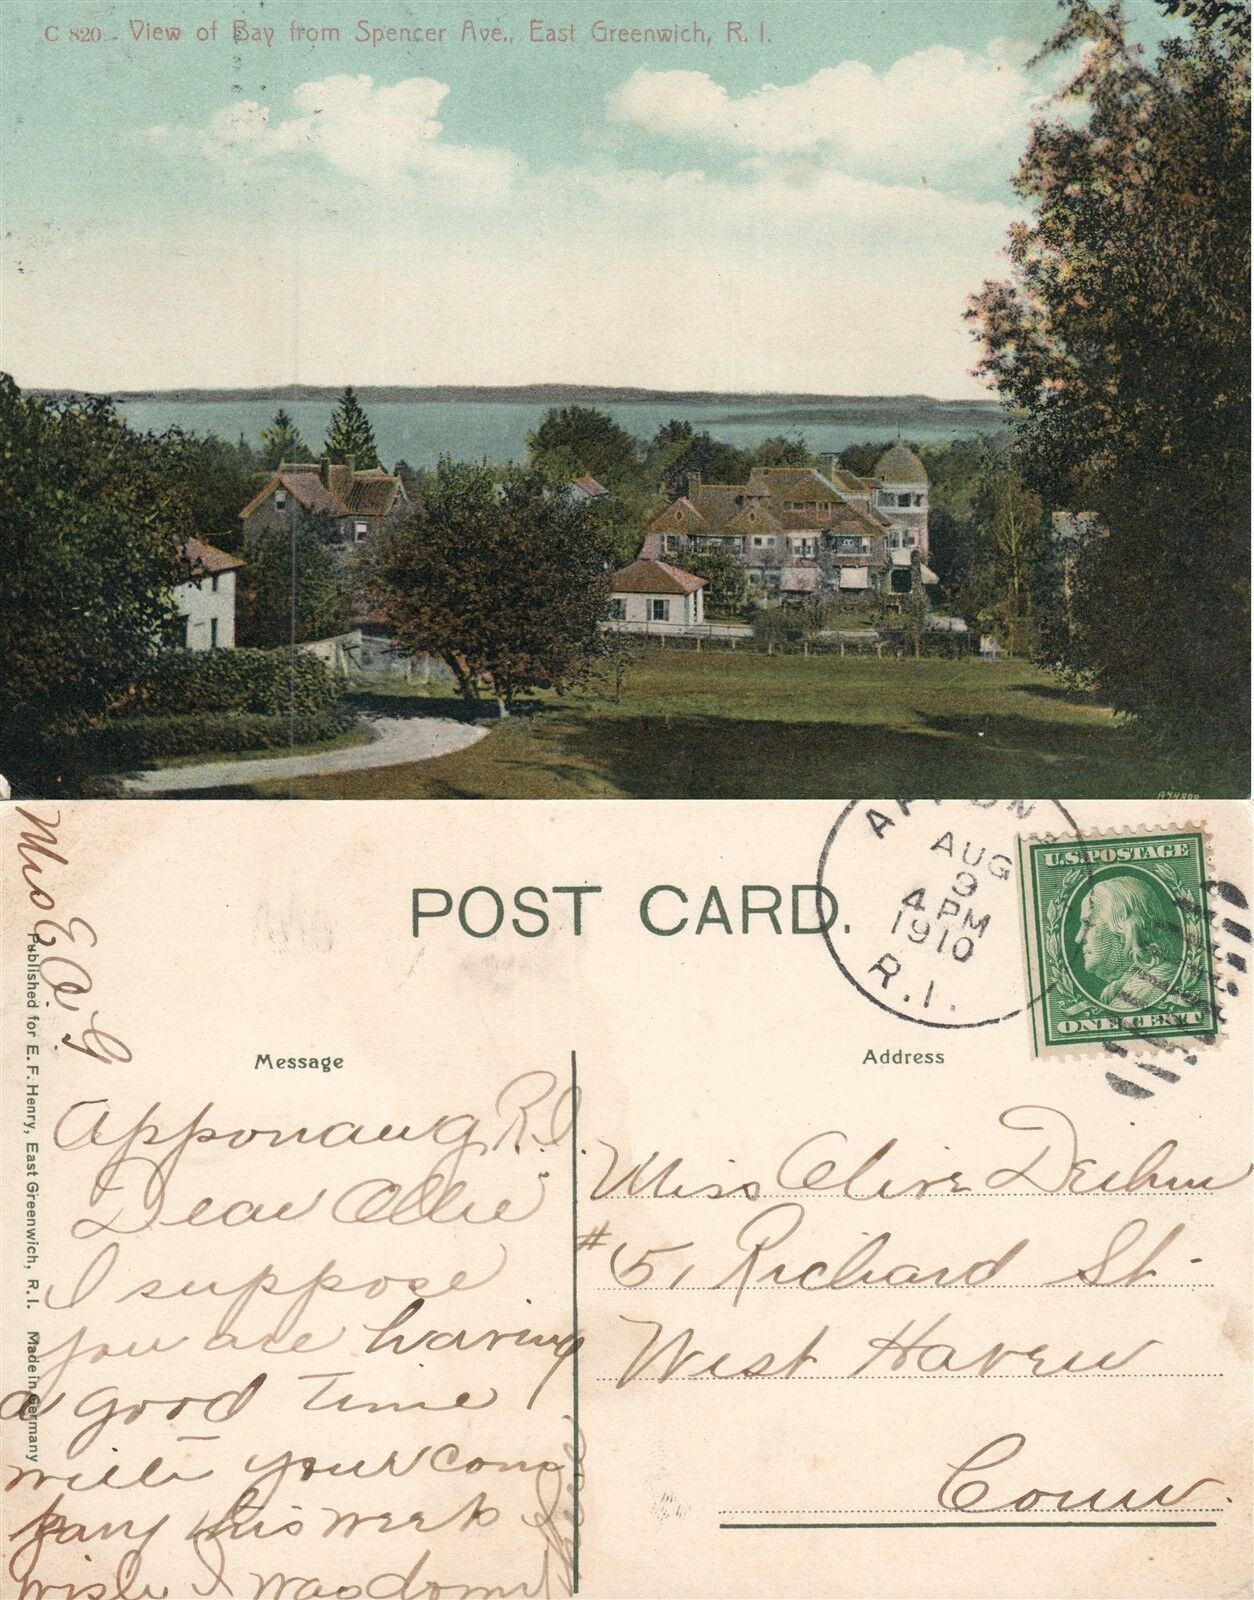 C 820.- View of Bay from Spencer Ave., East Greenwich, R. I.
POST CARD.
AUG
9
4 PM
1910
R.I.
U.S. POSTAGE
ONE CENT
Published for E. F. Henry, East Greenwich, R. I. Made in Germany
Message
Address
Apponaug R.I.
Dear Ollie
I suppose
you are having
a good time
with your com
pany this week I
wish I was down
Miss Olive Deihm
# 51 Richard St.
West Haven
Conn.